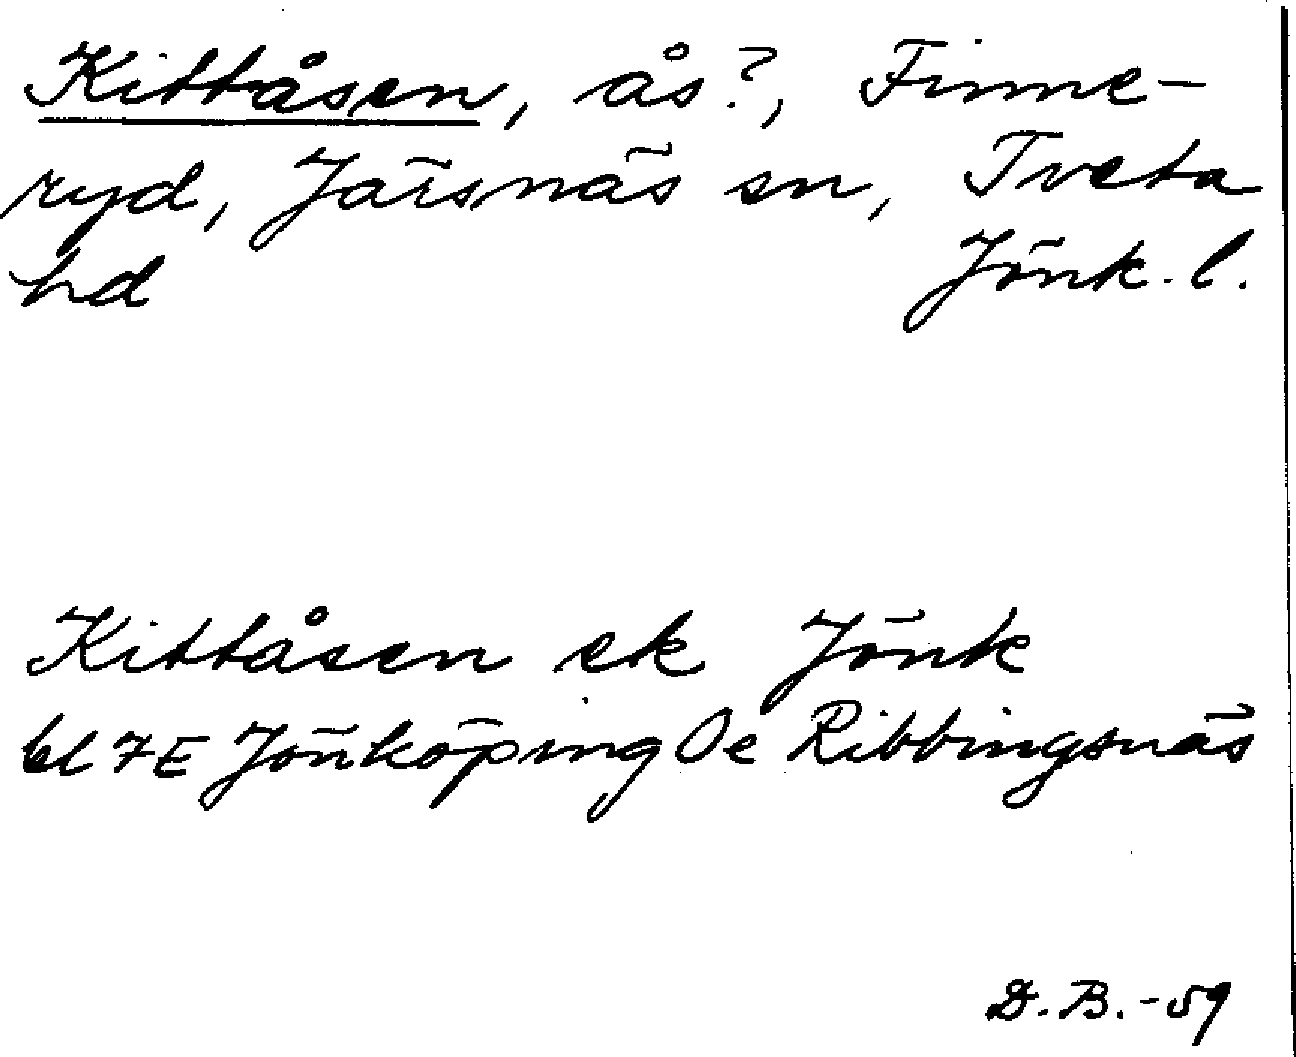 Kittåsen, ås?, Finne-
ryd, Järsnäs sn, Tveta
hd Jönk. l.
Kittåsen ek Jönk
bl 7E Jönköping Oe Ribbingsnäs
D.B.-59